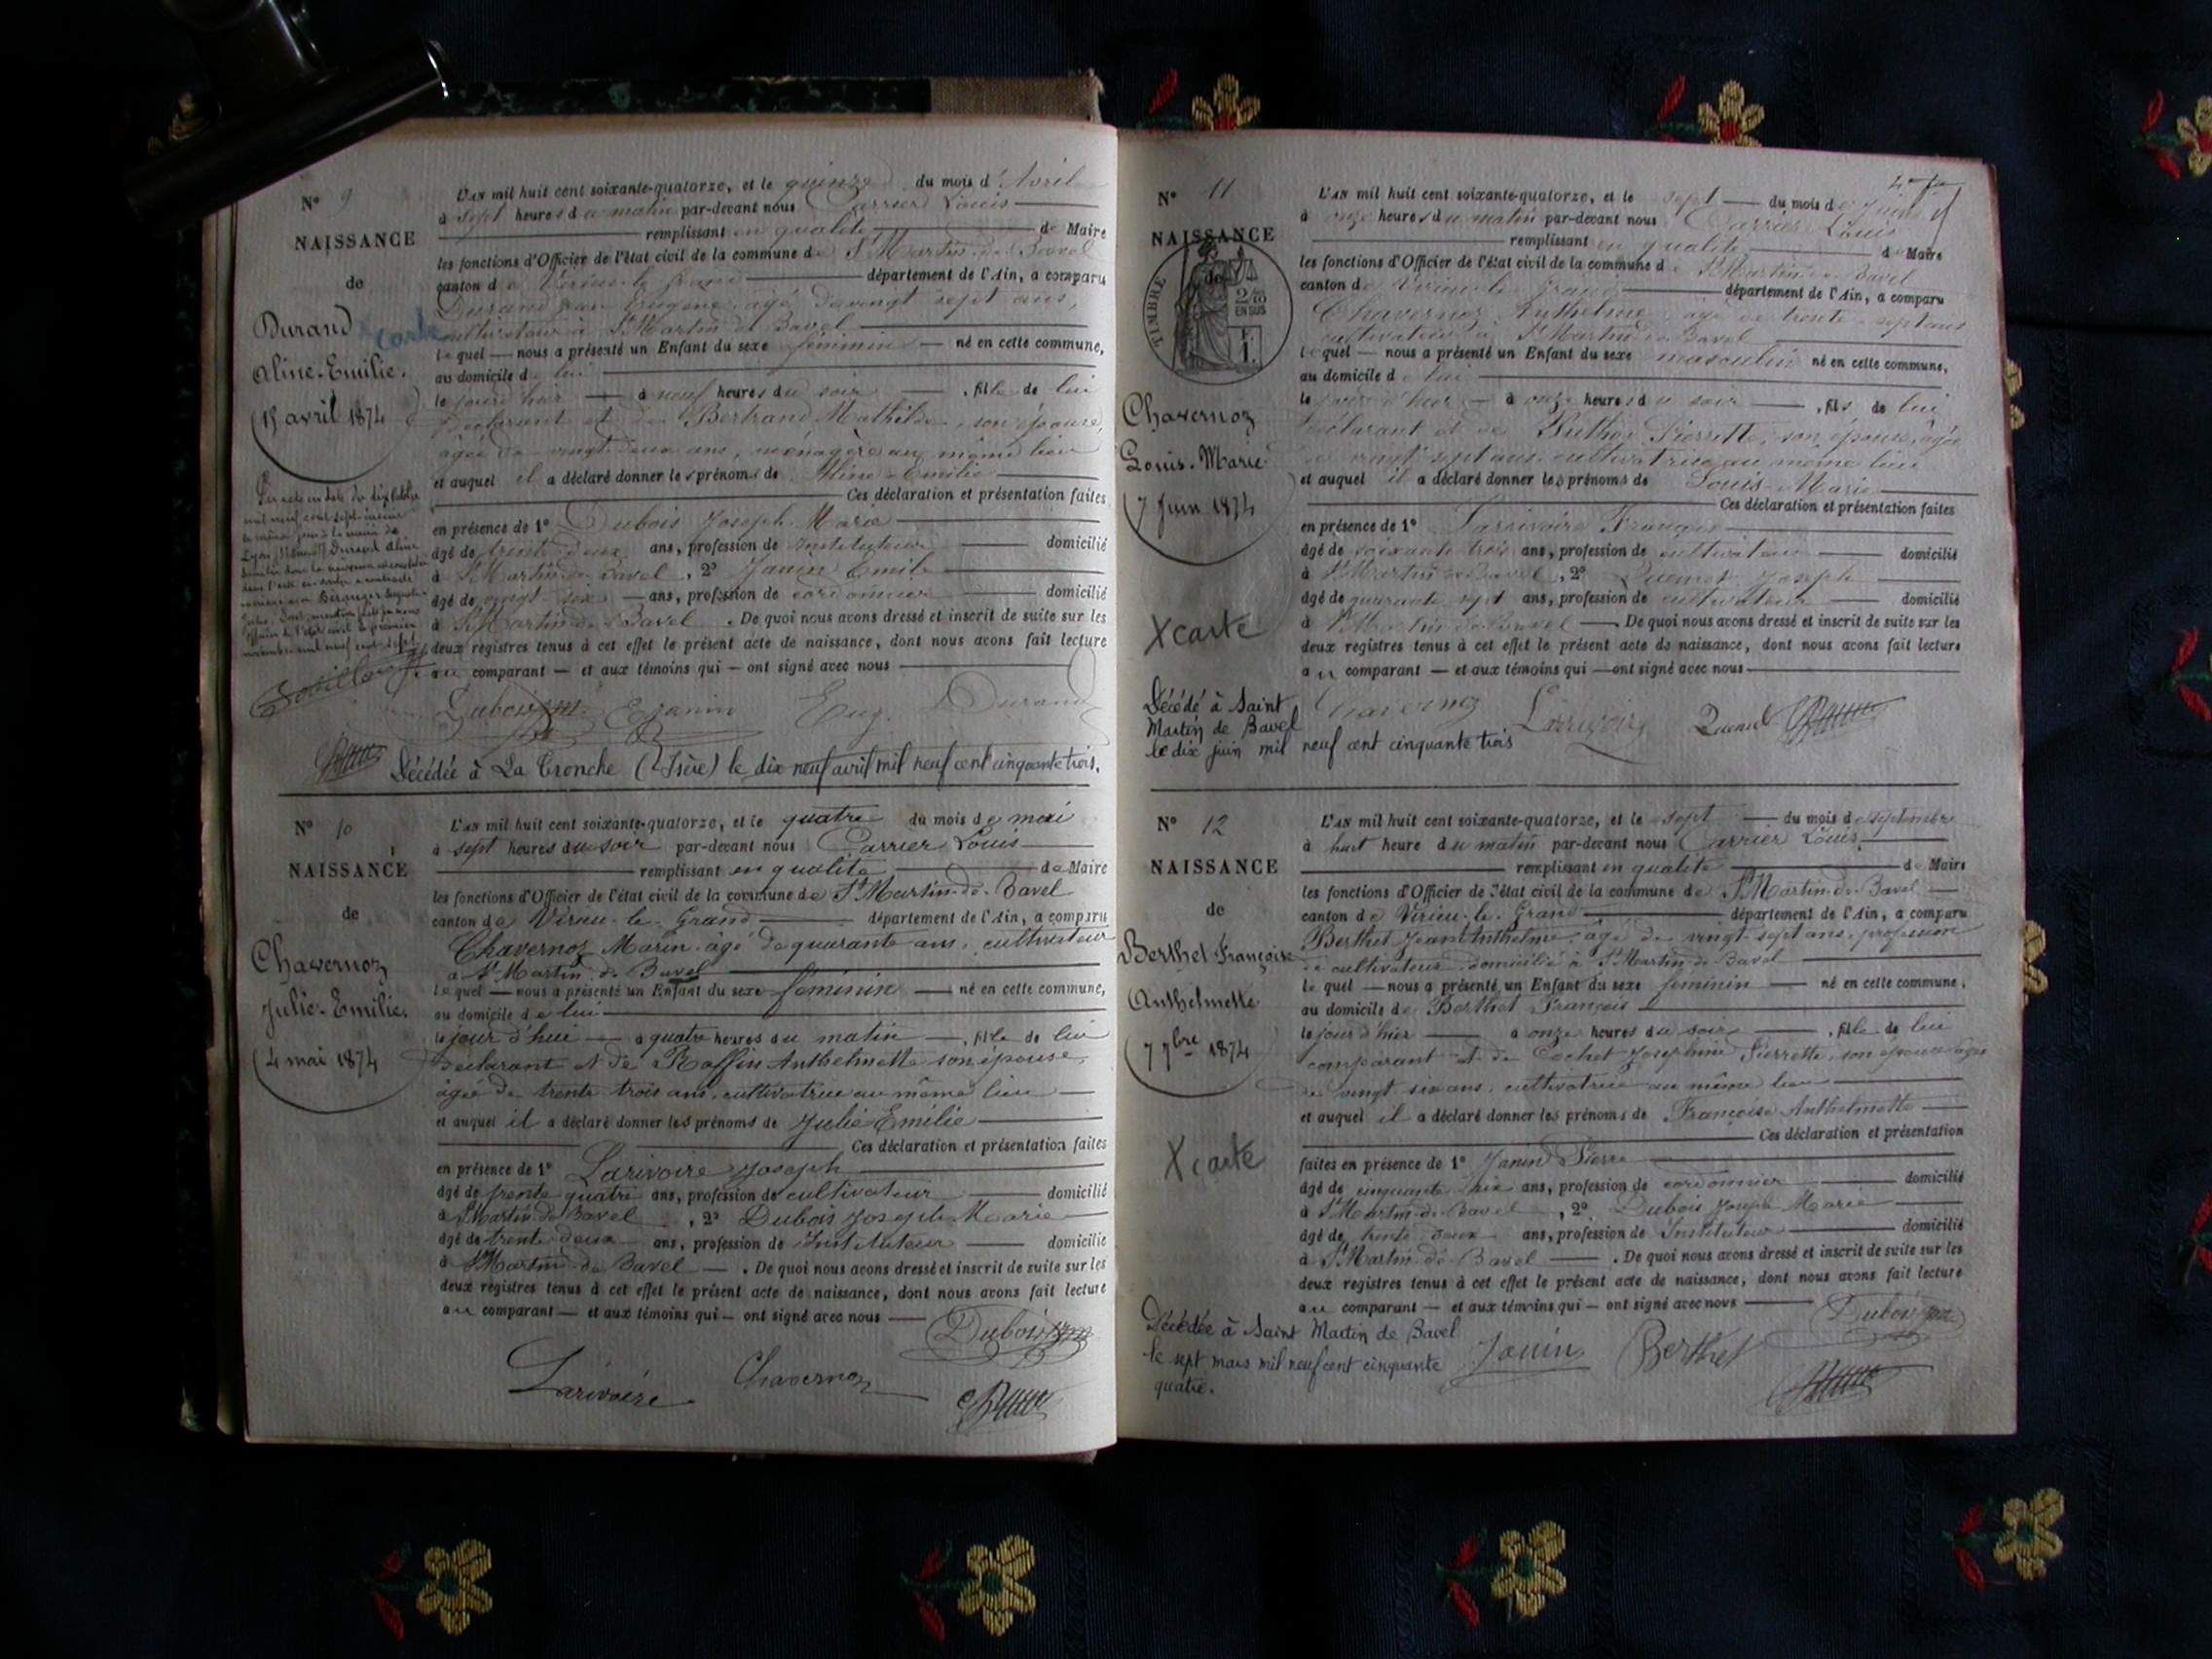 N° 9
NAISSANCE
de
Durand
Aline-Emilie.
15 avril 1874
carte
L'AN mil huit cent soixante-quatorze, et le quinze du mois d'Avril
à sept heures du matin par-devant nous Carrier Louis
remplissant en qualité de Maire
les fonctions d'Officier de l'état civil de la commune de St Martin-de-Bavel
canton de Virieu-le-Grand département de l'Ain, a comparu
Durand Jean Eugène, âgé de vingt sept ans,
cultivateur à St Martin de Bavel
lequel — nous a présenté un Enfant du sexe féminin — né en cette commune,
au domicile de lui
le jour d'hier — à neuf heures du soir —, fille de lui
déclarant et de Bertrand Mathilde, son épouse,
âgée de vingt-deux ans, ménagère au même lieu
et auquel il a déclaré donner les prénoms de Aline-Emilie
Ces déclaration et présentation faites
en présence de 1° Dubois Joseph Marie
âgé de trente deux ans, profession de Instituteur domicilié
à St Martin-de-Bavel, 2° Janin Emile
âgé de vingt-six — ans, profession de cordonnier domicilié
à St Martin-de-Bavel. De quoi nous avons dressé et inscrit de suite sur les
deux registres tenus à cet effet le présent acte de naissance, dont nous avons fait lecture
au comparant — et aux témoins qui — ont signé avec nous
Dubois E Janin Eug. Durand
Décédée à La Tronche (Isère) le dix neuf avril mil neuf cent cinquante trois.
N° 10
NAISSANCE
de
Chavernoz
Julie-Emilie.
4 mai 1874
L'AN mil huit cent soixante-quatorze, et le quatre du mois de mai
à sept heures du soir par-devant nous Carrier Louis
remplissant en qualité de Maire
les fonctions d'Officier de l'état civil de la commune de St Martin-de-Bavel
canton de Virieu-le-Grand département de l'Ain, a comparu
Chavernoz Marin, âgé de quarante ans, cultivateur
à St Martin-de-Bavel
lequel — nous a présenté un Enfant du sexe féminin — né en cette commune,
au domicile de lui
le jour d'hui — à quatre heures du matin —, fille de lui
déclarant et de Raffin Anthelmette son épouse,
âgée de trente trois ans, cultivatrice au même lieu
et auquel il a déclaré donner les prénoms de Julie Emilie
Ces déclaration et présentation faites
en présence de 1° Larivoire Joseph
âgé de trente quatre ans, profession de cultivateur domicilié
à St Martin-de-Bavel, 2° Dubois Joseph Marie
âgé de trente-deux ans, profession de Instituteur domicilié
à St Martin-de-Bavel —. De quoi nous avons dressé et inscrit de suite sur les
deux registres tenus à cet effet le présent acte de naissance, dont nous avons fait lecture
au comparant — et aux témoins qui — ont signé avec nous
Dubois
Larivoire Chavernoz
N° 11
NAISSANCE
de
TIMBRE
2/10
EN SUS
F.
1.
Chavernoz
Louis-Marie
7 Juin 1874
X carte
L'AN mil huit cent soixante-quatorze, et le sept — du mois de Juin
à onze heures du matin par-devant nous Carrier Louis
remplissant en qualité de Maire
les fonctions d'Officier de l'état civil de la commune de St Martin-de-Bavel
canton de Virieu-le-Grand département de l'Ain, a comparu
Chavernoz Anthelme, âgé de trente-sept ans
cultivateur à St Martin-de-Bavel
lequel — nous a présenté un Enfant du sexe masculin né en cette commune,
au domicile de lui
le jour d'hier — à onze heures du soir —, fils de lui
déclarant et de Pierrette, son épouse, âgée
de vingt sept ans, cultivatrice au même lieu
et auquel il a déclaré donner les prénoms de Louis-Marie
Ces déclaration et présentation faites
en présence de 1° Larrivoire François
âgé de soixante trois ans, profession de cultivateur domicilié
à St Martin-de-Bavel, 2° Joseph
âgé de quarante sept ans, profession de cultivateur domicilié
à St Martin-de-Bavel —. De quoi nous avons dressé et inscrit de suite sur les
deux registres tenus à cet effet le présent acte de naissance, dont nous avons fait lecture
au comparant — et aux témoins qui — ont signé avec nous
Chavernoz Larrivoire
Décédé à Saint
Martin de Bavel
le dix juin mil neuf cent cinquante trois
N° 12
NAISSANCE
de
Berthet Françoise
Anthelmette
7 7bre 1874
X carte
L'AN mil huit cent soixante-quatorze, et le sept — du mois de septembre
à huit heure du matin par-devant nous Carrier Louis
remplissant en qualité de Maire
les fonctions d'Officier de l'état civil de la commune de St Martin-de-Bavel
canton de Virieu-le-Grand département de l'Ain, a comparu
Berthet Jean Anthelme, âgé de vingt-sept ans, profession
de cultivateur, domicilié à St Martin-de-Bavel
lequel — nous a présenté un Enfant du sexe féminin — né en cette commune,
au domicile de Berthet François
le jour d'hier — à onze heures du soir —, fille de lui
comparant et de Cochet Joséphine Pierrette, son épouse âgée
de vingt six ans, cultivatrice au même lieu
et auquel il a déclaré donner les prénoms de Françoise Anthelmette
Ces déclaration et présentation
faites en présence de 1° Janin Pierre
âgé de cinquante six ans, profession de cordonnier domicilié
à St Martin-de-Bavel, 2° Dubois Joseph Marie
âgé de trente deux ans, profession de Instituteur domicilié
à St Martin-de-Bavel —. De quoi nous avons dressé et inscrit de suite sur les
deux registres tenus à cet effet le présent acte de naissance, dont nous avons fait lecture
au comparant — et aux témoins qui — ont signé avec nous
Dubois
Janin Berthet
Décédée à Saint Martin de Bavel
le sept mars mil neuf cent cinquante
quatre.